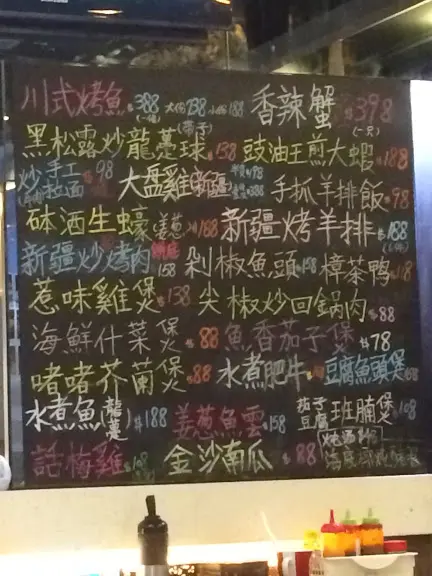 川式烤魚 $388 大 238 188 香辣蟹 $398
(一條) (一只)
黑松露炒龍躉球 (帶子) $138 豉油王煎大蝦 $188
炒手工拉面 $98 大盘雞新疆 $198 手抓羊排飯 $98
砵酒生蠔 姜葱 $188 新疆烤羊排 $188
新疆炒烤肉 158 剁椒魚頭 $158 樟茶鴨 $118
惹味雞煲 $138 尖椒炒回鍋肉 $88
海鮮什菜煲 $88 魚香茄子煲 $78
啫啫芥蘭煲 $88 水煮肥牛 豆腐魚頭煲
水煮魚(龍躉) $188 姜葱魚雲 $158 茄子豆腐班腩煲 $108
話梅雞 $108 金沙南瓜 $88